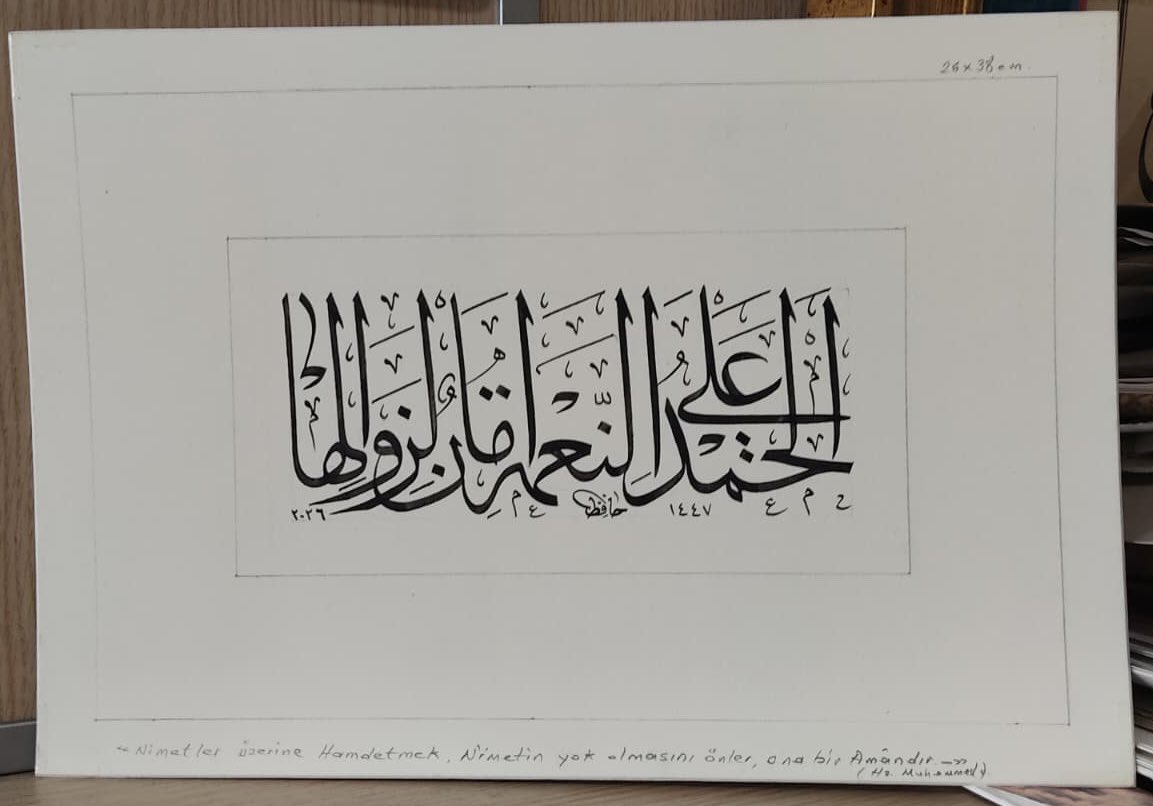 26x38 cm.
الحمد على النعمة امان لزوالها
١٤٤٧ حافظ ٢٠٢٦
«Nimetler üzerine Hamdetmek, Nimetin yok olmasını önler, ona bir Amândır.—»
(Hz. Muhammed)